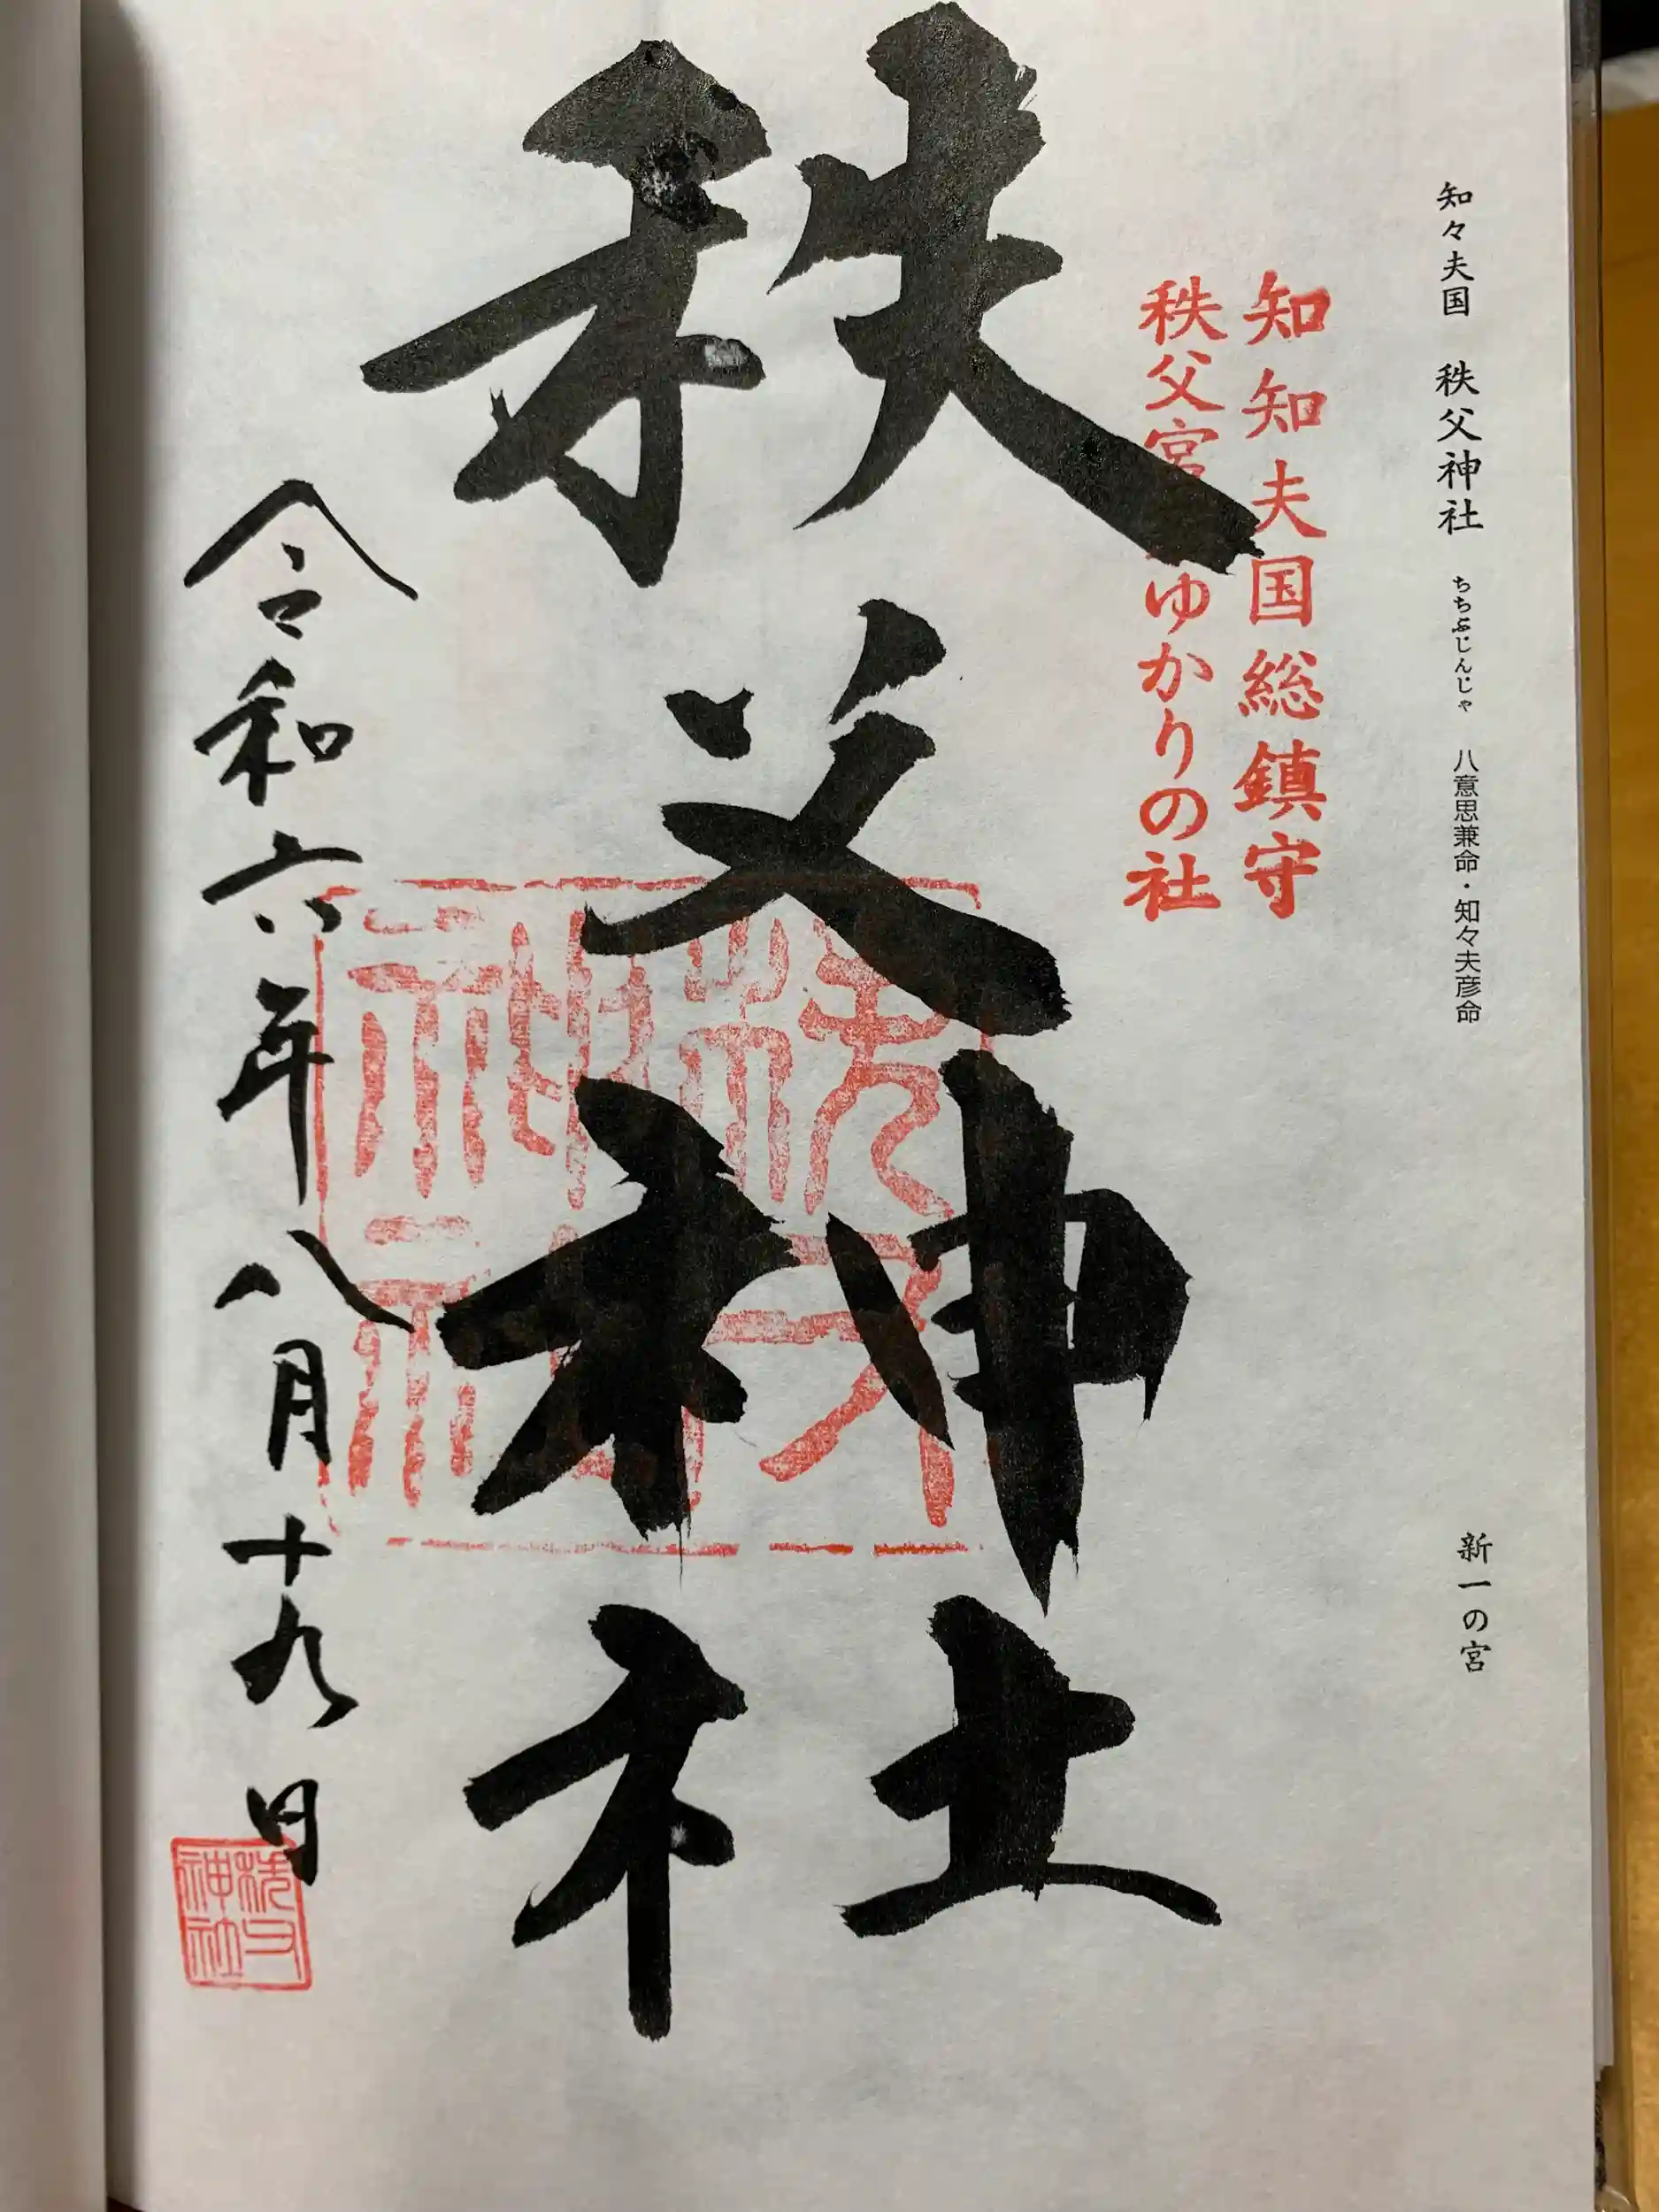 知々夫国 秩父神社 ちちぶじんじゃ 八意思兼命・知々夫彦命
新一の宮
知知夫国総鎮守
秩父宮ゆかりの社
秩父神社
秩父神社
令和六年八月十九日
秩父神社